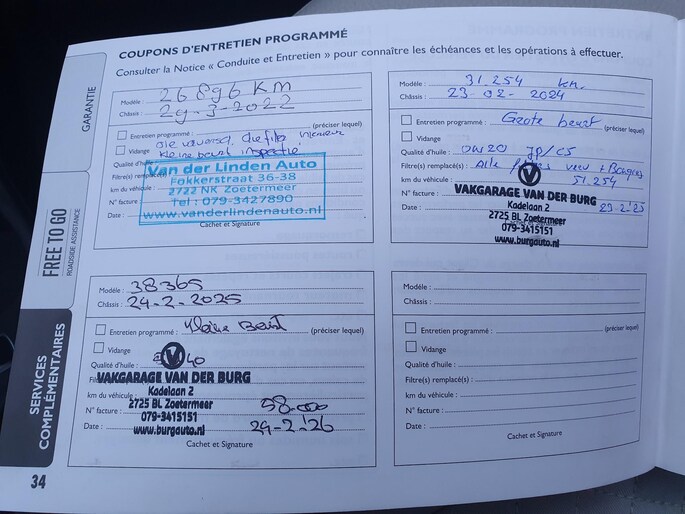 COUPONS D'ENTRETIEN PROGRAMMÉ
Consulter la Notice « Conduite et Entretien » pour connaître les échéances et les opérations à effectuer.
GARANTIE
FREE TO GO
ROADSIDE ASSISTANCE
SERVICES
COMPLÉMENTAIRES
Modèle : 26896 KM
Châssis : 29-3-2022
Entretien programmé : (préciser lequel)
olie verversen, oliefilter, interieur
Vidange
kleine beurt inspectie
Qualité d'huile
Filtre(s) remplacé(s)
km du véhicule :
N° facture :
Date :
Van der Linden Auto
Fokkerstraat 36-38
2722 NK Zoetermeer
tel : 079-3427890
www.vanderlindenauto.nl
Cachet et Signature
Modèle : 31.254 km.
Châssis : 23-02-2024
Entretien programmé : Grote beurt (préciser lequel)
Vidange
Qualité d'huile : 0W20
Filtre(s) remplacé(s) : Alle
km du véhicule : 51.254
N° facture :
Date : 23-2-'25
V
VAKGARAGE VAN DER BURG
Kadelaan 2
2725 BL Zoetermeer
079-3415151
www.burgauto.nl
Cachet et Signature
Modèle : 38365
Châssis : 24-2-2025
Entretien programmé : Kleine Beurt (préciser lequel)
Vidange
Qualité d'huile : 40
km du véhicule :
N° facture : 58.000
Date : 24-2-'26
V
VAKGARAGE VAN DER BURG
Kadelaan 2
2725 BL Zoetermeer
079-3415151
www.burgauto.nl
Cachet et Signature
Modèle :
Châssis :
Entretien programmé : (préciser lequel)
Vidange
Qualité d'huile :
Filtre(s) remplacé(s) :
km du véhicule :
N° facture :
Date :
Cachet et Signature
34